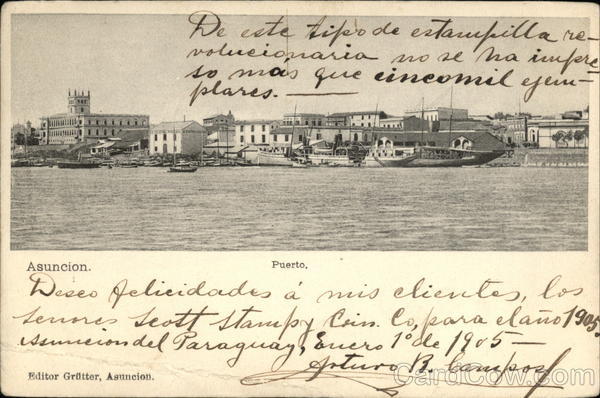 De este tipo de estampilla re-
volucionaria no se ha impre-
so más que cincomil ejem-
plares. —
Asuncion. Puerto,
Deseo felicidades á mis clientes, los
señores Scott Stamp y Coin. Co, para el año 1905.
Asuncion del Paraguay, Enero 1º de 1905 —
Arturo B. Campos
Editor Grütter, Asuncion.
CardCow.com